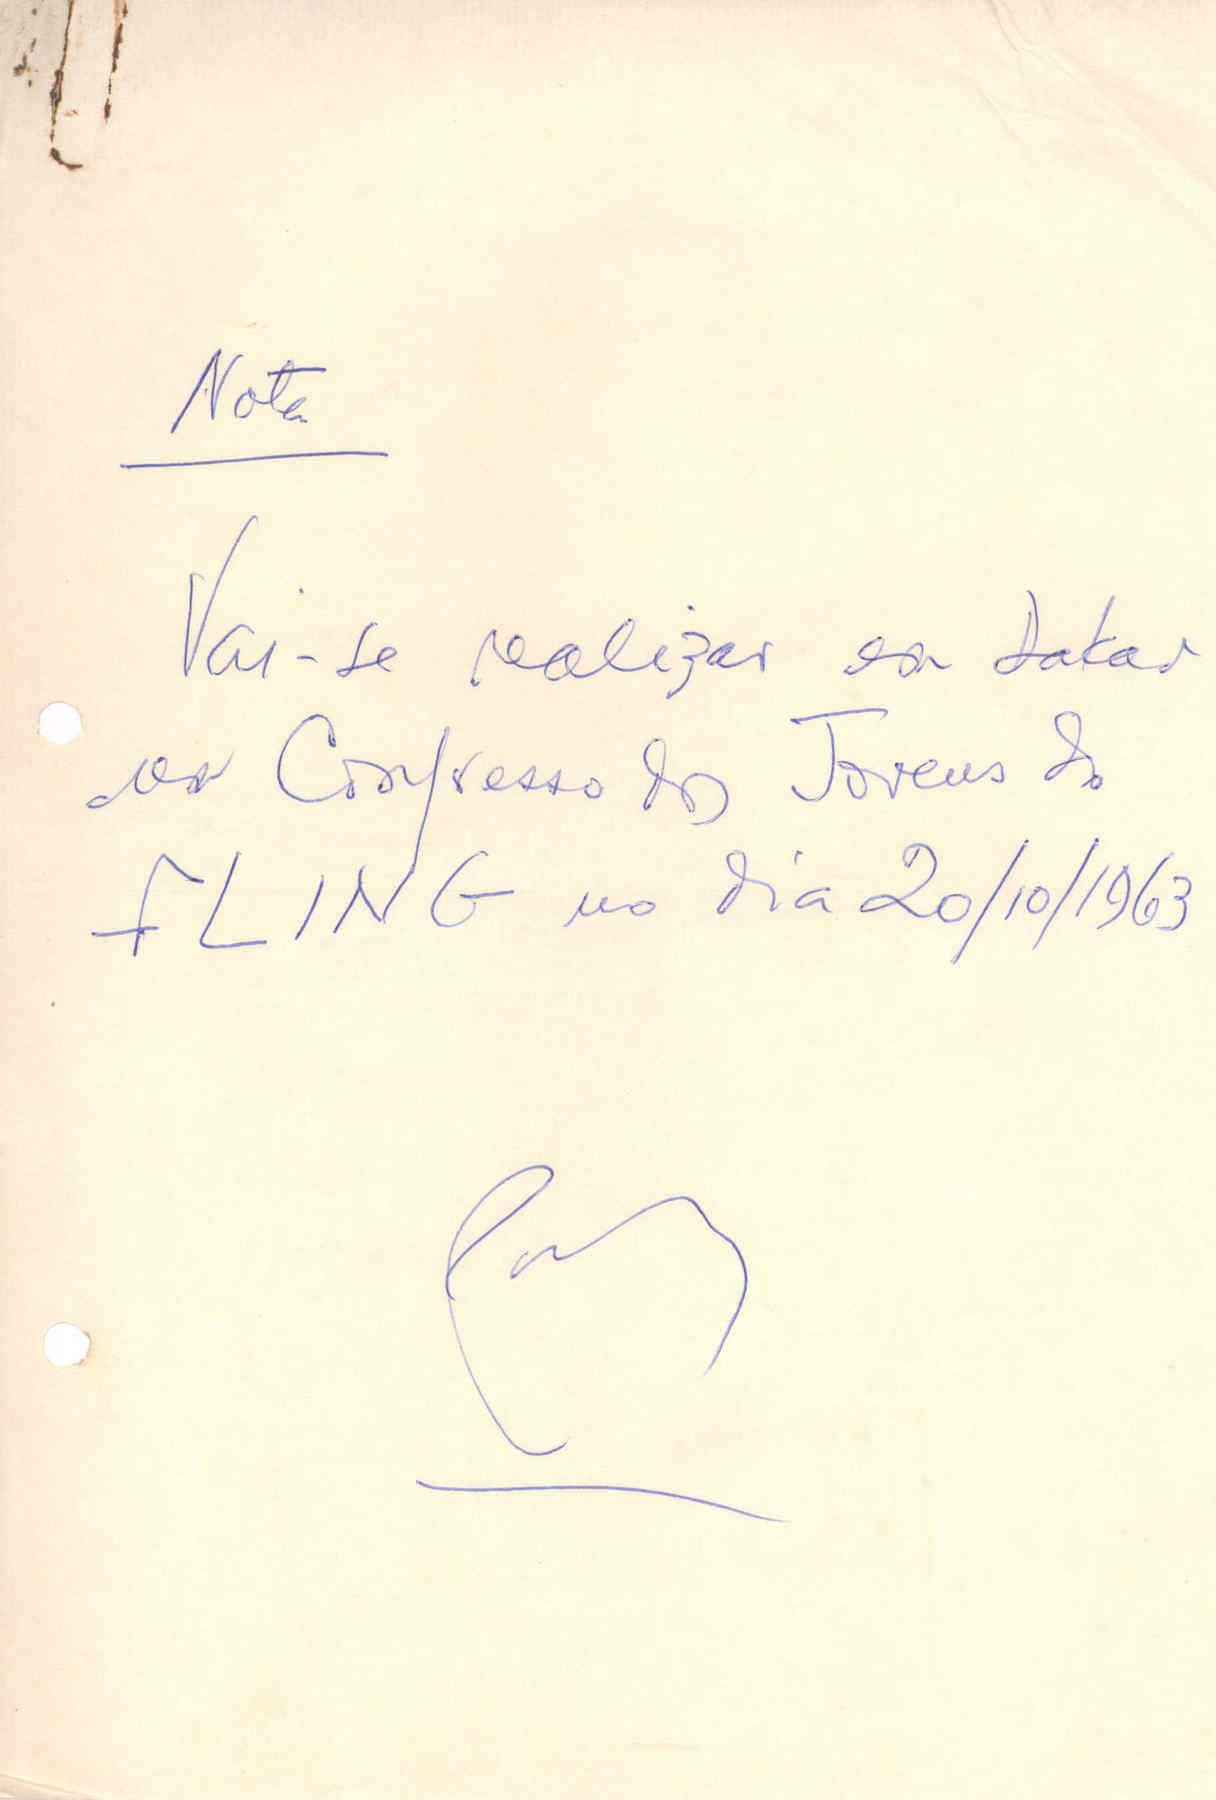 Nota
Vai-se realizar em Dakar
um Congresso dos Jovens do
FLING no dia 20/10/1963